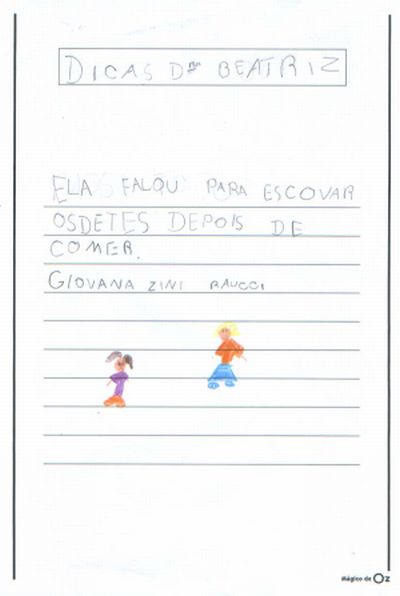 DICAS DRA BEATRIZ
ELA FALOU PARA ESCOVAR
OSDETES DEPOIS DE
COMER.
GIOVANA ZINI RAUCCI
Mágico de Oz